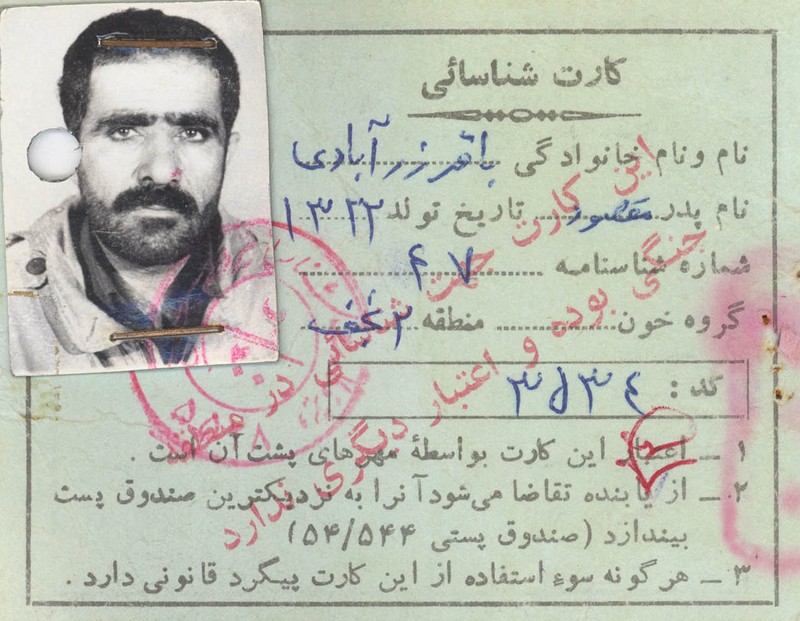 کارت شناسائی
نام ونام خانوادگی باقر زرآبادی
نام پدر تاریخ تولد ۱۳۲۲
شماره شناسنامه ۴۷
گروه خون منطقه ۳
کد :
۱ــ اعتبار این کارت بواسطهٔ مهرهای پشت آن است .
۲ــ از یابنده تقاضا می‌شود آنرا به نزدیکترین صندوق پست
بیندازد (صندوق پستی ۵۴/۵۴۴)
۳ــ هرگونه سوء استفاده از این کارت پیگرد قانونی دارد .
این کارت جهت شناسائی در منطقه
جنگی بوده و اعتبار دیگری ندارد